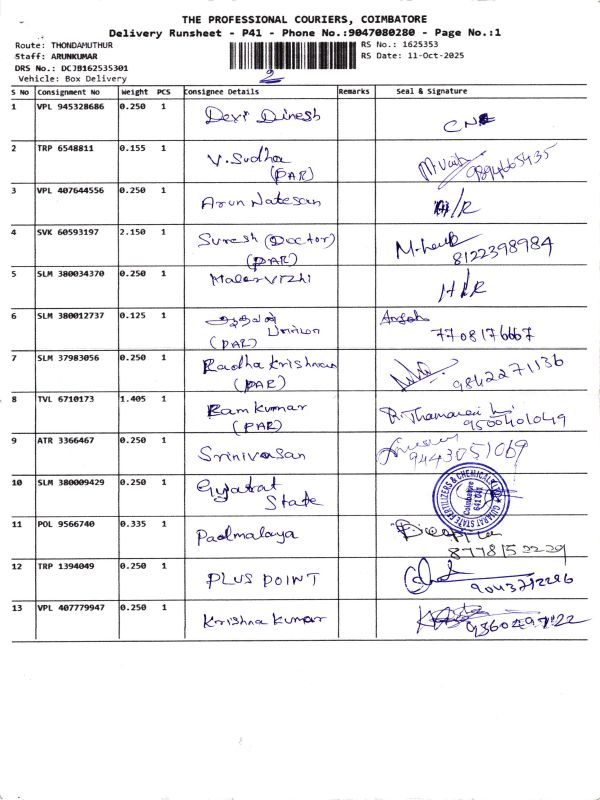 THE PROFESSIONAL COURIERS, COIMBATORE
Delivery Runsheet - P41 - Phone No.:9047080280 - Page No.:1
Route: THONDAMUTHUR
RS No.: 1625353
Staff: ARUNKUMAR
RS Date: 11-Oct-2025
DRS No.: DCJB162535301
Vehicle: Box Delivery
2
S No Consignment No Weight PCS Consignee Details Remarks Seal & Signature
1 VPL 945328686 0.250 1 Devi Dinesh
2 TRP 6548811 0.155 1 V. Sudha
(PAR) 9894665435
3 VPL 407644556 0.250 1 Arun Natesan H/R
4 SVK 60593197 2.150 1 Suresh (Doctor)
(PAR) 8122398984
5 SLM 380034370 0.250 1 Malarvizhi H/R
6 SLM 380012737 0.125 1
(PAR) 7708176667
7 SLM 37983056 0.250 1 Radha Krishnan
(PAR) 9842271136
8 TVL 6710173 1.405 1 Ram Kumar
(PAR) 9500401049
9 ATR 3366467 0.250 1 Srinivasan
9443051069
10 SLM 380009429 0.250 1 Gujarat
State
GUJARAT STATE FERTILIZERS & CHEMICALS LTD
Coimbatore
641 041
11 POL 9566740 0.335 1 Padmalaya
12 TRP 1394049 0.250 1 PLUS POINT
9043792286
13 VPL 407779947 0.250 1 Krishna Kumar